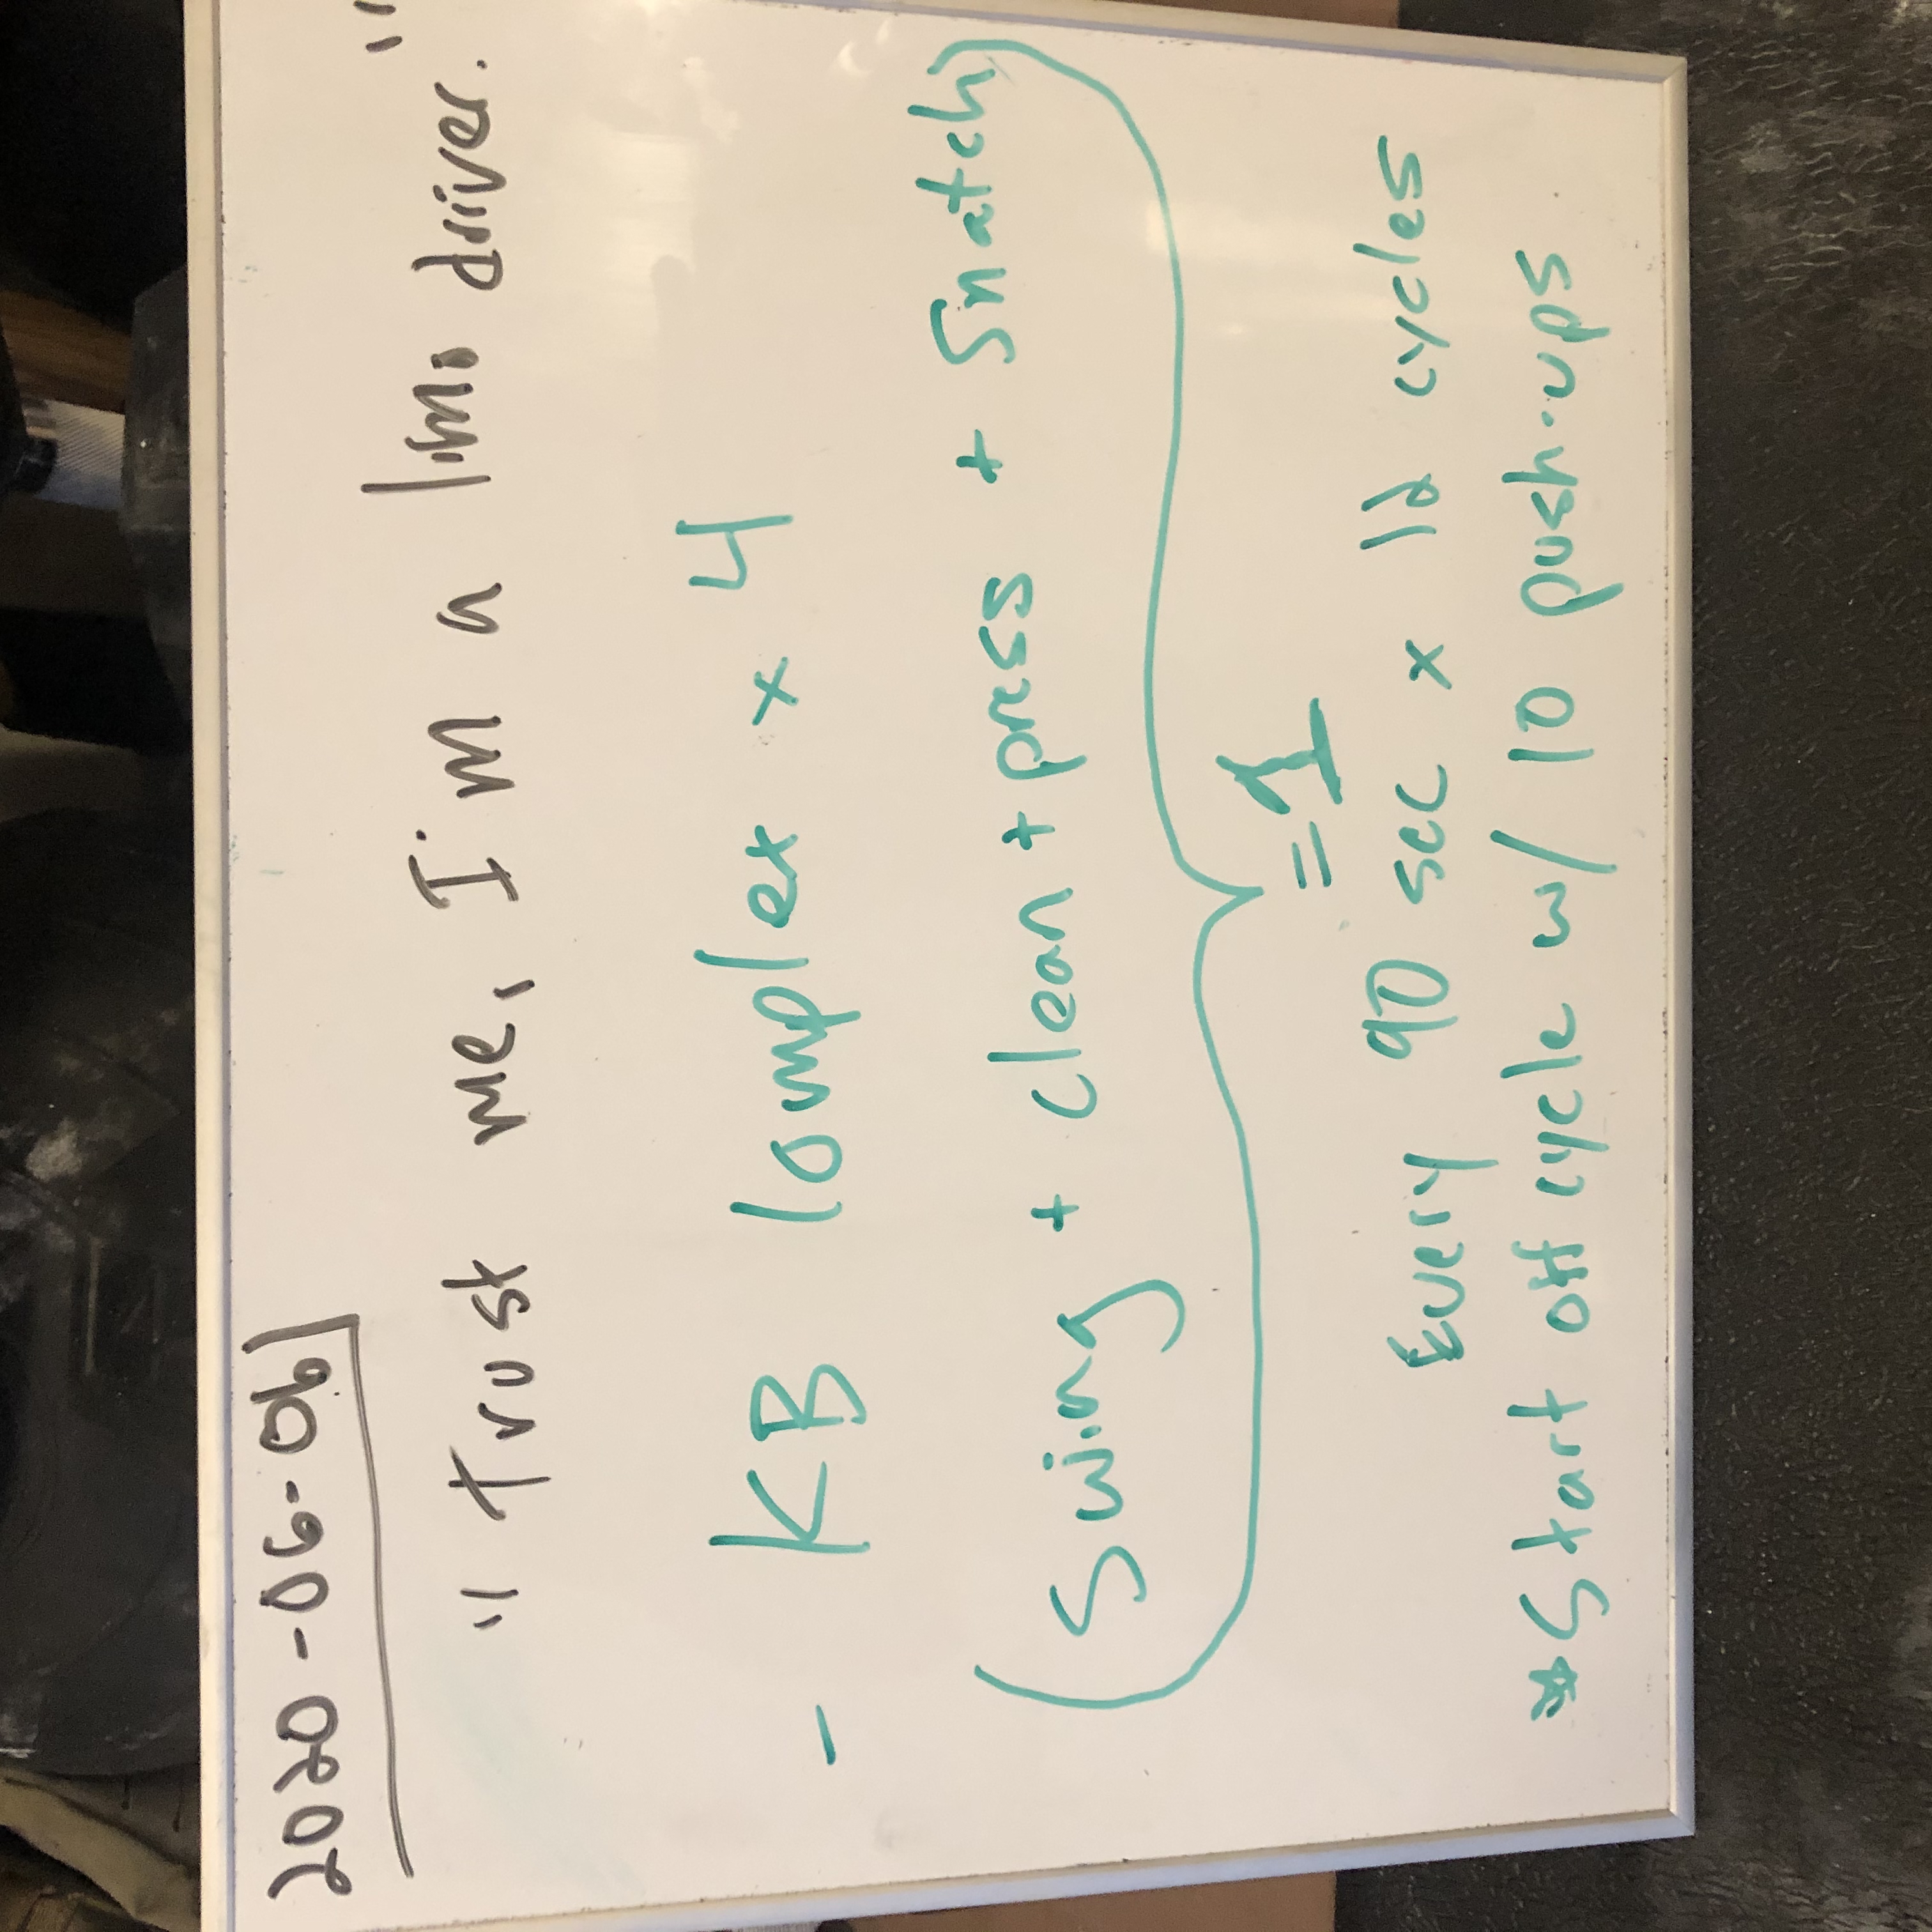 2020-06-06
"Trust me, I'm a limo driver."
- KB Complex x 4
(Swing + clean + press + Snatch)
= 1
Every 90 sec x 12 cycles
*Start off cycle w/ 10 push-ups